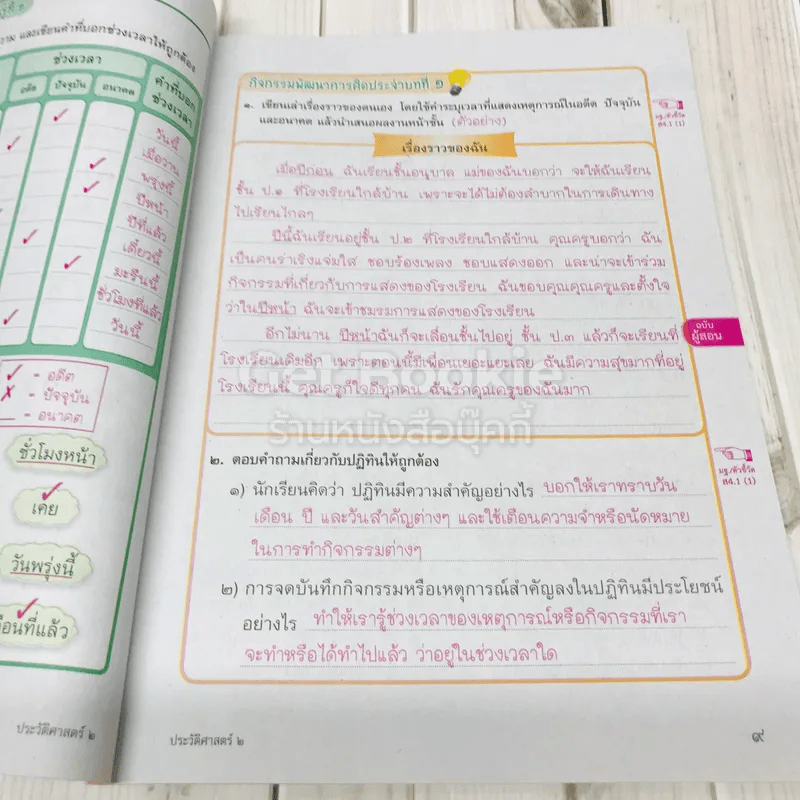 วาม และเขียนคำที่บอกช่วงเวลาให้ถูกต้อง
ช่วงเวลา
คำที่บอก
ช่วงเวลา
อดีต ปัจจุบัน อนาคต
วันนี้
เมื่อวาน
พรุ่งนี้
ปีหน้า
ปีที่แล้ว
เดี๋ยวนี้
มะรืนนี้
ชั่วโมงที่แล้ว
วันนี้
✓ - อดีต
✗ - ปัจจุบัน
__ - อนาคต
ชั่วโมงหน้า
เคย
วันพรุ่งนี้
ดือนที่แล้ว
ประวัติศาสตร์ ๒
กิจกรรมพัฒนาการคิดประจำบทที่ ๑
๑. เขียนเล่าเรื่องราวของตนเอง โดยใช้คำระบุเวลาที่แสดงเหตุการณ์ในอดีต ปัจจุบัน
และอนาคต แล้วนำเสนอผลงานหน้าชั้น (ตัวอย่าง)
มฐ./ตัวชี้วัด
ส4.1 (1)
เรื่องราวของฉัน
เมื่อปีก่อน ฉันเรียนชั้นอนุบาล แม่ของฉันบอกว่า จะให้ฉันเรียน
ชั้น ป.๑ ที่โรงเรียนใกล้บ้าน เพราะจะได้ไม่ต้องลำบากในการเดินทาง
ไปเรียนไกลๆ
ปีนี้ฉันเรียนอยู่ชั้น ป.๒ ที่โรงเรียนใกล้บ้าน คุณครูบอกว่า ฉัน
เป็นคนร่าเริงแจ่มใส ชอบร้องเพลง ชอบแสดงออก และน่าจะเข้าร่วม
กิจกรรมที่เกี่ยวกับการแสดงของโรงเรียน ฉันขอบคุณคุณครูและตั้งใจ
ว่าในปีหน้า ฉันจะเข้าชมรมการแสดงของโรงเรียน
อีกไม่นาน ปีหน้าฉันก็จะเลื่อนชั้นไปอยู่ ชั้น ป.๓ แล้วก็จะเรียนที่
โรงเรียนเดิมอีก เพราะตอนนี้มีเพื่อนเยอะแยะเลย ฉันมีความสุขมากที่อยู่
โรงเรียนนี้ คุณครูก็ใจดีทุกคน ฉันรักคุณครูของฉันมาก
ฉบับ
ผู้สอน
ร้านหนังสือบุ๊คกี้
๒. ตอบคำถามเกี่ยวกับปฏิทินให้ถูกต้อง
มฐ./ตัวชี้วัด
ส4.1 (1)
๑) นักเรียนคิดว่า ปฏิทินมีความสำคัญอย่างไร บอกให้เราทราบวัน
เดือน ปี และวันสำคัญต่างๆ และใช้เตือนความจำหรือนัดหมาย
ในการทำกิจกรรมต่างๆ
๒) การจดบันทึกกิจกรรมหรือเหตุการณ์สำคัญลงในปฏิทินมีประโยชน์
อย่างไร ทำให้เรารู้ช่วงเวลาของเหตุการณ์หรือกิจกรรมที่เรา
จะทำหรือได้ทำไปแล้ว ว่าอยู่ในช่วงเวลาใด
ประวัติศาสตร์ ๒
๙